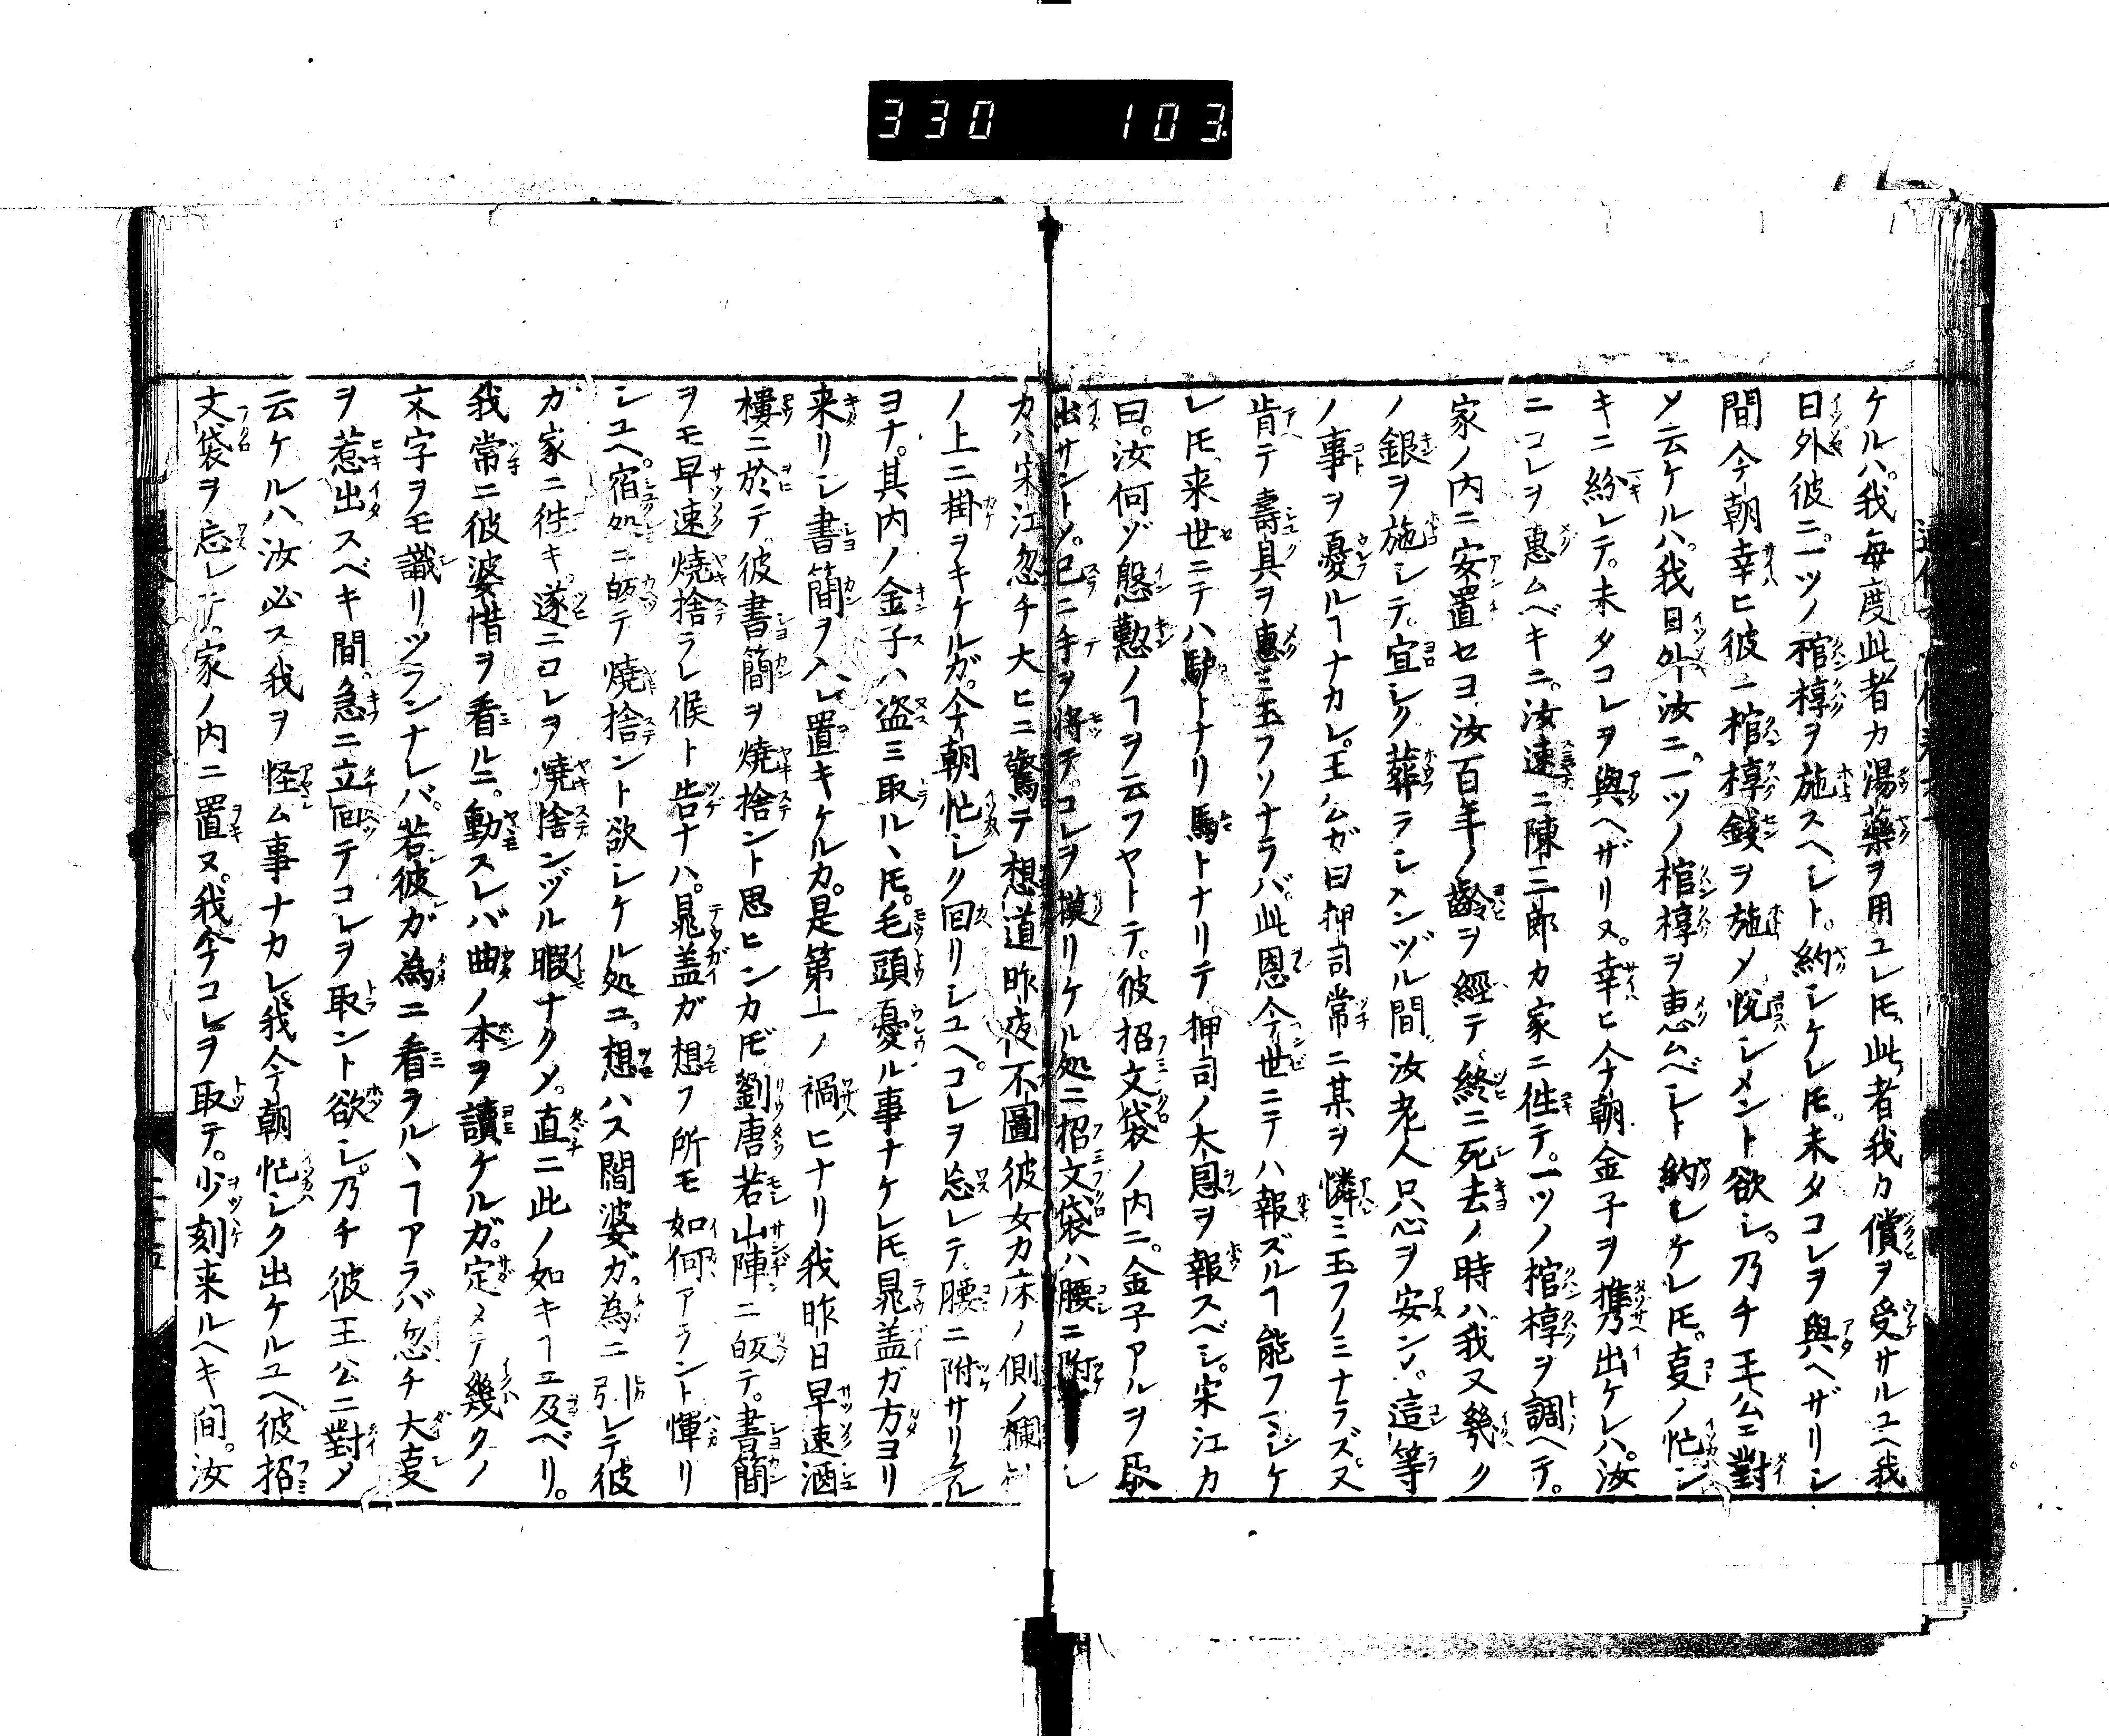 330 103
ケルハ。我毎度此者カ湯藥ヲ用ユレ𪜈、此者我カ償ヲ受サルユヘ我
日外彼ニ一ツノ棺椁ヲ施スヘシト。約シケレ𪜈、未タコレヲ與ヘザリシ
間今朝幸ヒ彼ニ棺椁錢ヲ施メ悦シメント欲シ。乃チ王公ニ對
メ云ケルハ。我日外汝ニ。一ツノ棺椁ヲ惠ムベシト約シケレ𪜈。事ノ忙シ
キニ紛レテ。未タコレヲ與ヘザリヌ。幸ヒ今朝金子ヲ携出ケレハ。汝
ニコレヲ惠ムベキニ。汝速ニ陳三郎カ家ニ徃テ。一ツノ棺椁ヲ調ヘテ。
家ノ内ニ安置セヨ汝百年ノ齡ヲ經テ終ニ死去ノ時ハ我又幾ク
ノ銀ヲ施シテ宜シク葬ラシメンヅル間汝老人只心ヲ安ンメ。這等
ノ事ヲ憂ルヿナカレ。王公ガ曰押司常ニ某ヲ憐ミ玉フノミナラズ。又
肯テ壽具ヲ惠ミ玉フソナラバ。此恩今世ニテハ報ズルヿ能フマシケ
レ𪜈、来世ニテハ驢トナリ馬トナリテ押司ノ大恩ヲ報スベシ。宋江カ
曰。汝何ゾ慇懃ノヿヲ云フヤトテ。彼招文袋ノ内ニ。金子アルヲ取
出サントメ。已ニ手ヲ將テ。コレヲ摸リケル処ニ招文袋ハ腰ニ附
カハ宋江忽チ大ヒニ驚テ想道昨夜不圖彼女カ床ノ側ノ欄
ノ上ニ掛ヲキケルガ。今朝忙シク回リシユヘ。コレヲ忘レテ腰ニ附サリケル
ヨナ。其内ノ金子ハ盗ミ取ルヽ𪜈。毛頭憂ル事ナケレ𪜈晁盖ガ方ヨリ
来リシ書簡ヲ入レ置キケルカ。是第一ノ禍ヒナリ我昨日早速酒
樓ニ於テ彼書簡ヲ燒捨ント思ヒシカ𪜈劉唐若山陣ニ皈テ。書簡
ヲモ早速燒捨ラレ候ト告ナハ。晁盖ガ想フ所モ如何アラント憚リ
シユヘ。宿処ニ皈テ燒捨ント欲シケル処ニ。想ハス閻婆ガ為ニ引レテ彼
カ家ニ徃キ。遂ニコレヲ燒捨ンヅル暇ナクメ。直ニ此ノ如キヿニ及ベリ。
我常ニ彼婆惜ヲ看ルニ。動スレバ曲ノ本ヲ讀ケルガ。定メテ幾クノ
文字ヲモ識リツランナレバ。若彼ガ為ニ看ラルヽヿアラバ忽チ大事
ヲ惹出スベキ間。急ニ立回テコレヲ取ント欲シ。乃チ彼王公ニ對メ
云ケルハ汝必ス我ヲ怪ム事ナカレ我今朝忙シク出ケルユヘ彼招
文袋ヲ忘レテ家ノ内ニ置ヌ。我今コレヲ取テ。少刻来ルヘキ間。汝